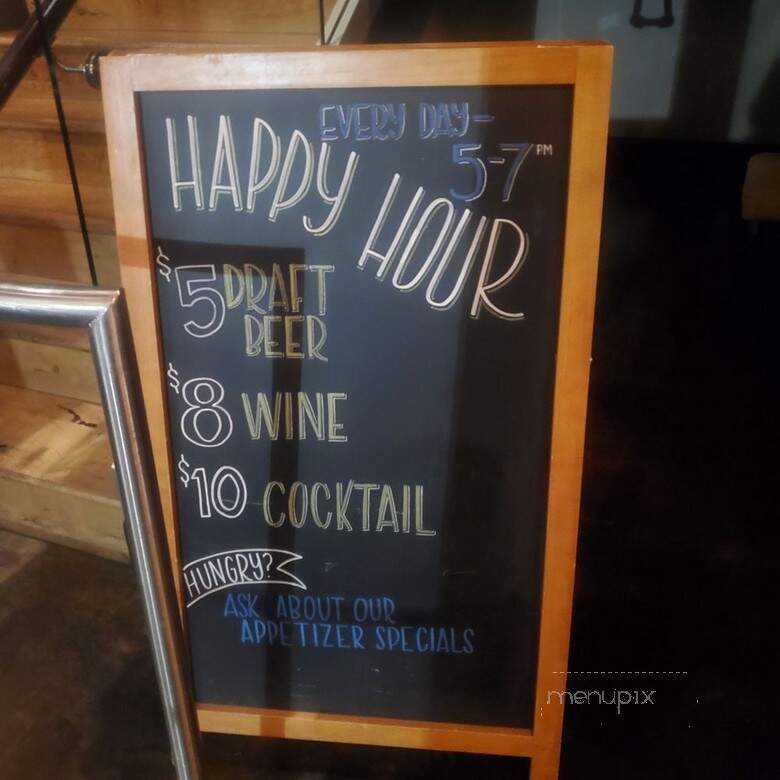 EVERY DAY-
5-7PM
HAPPY
HOUR
$5 DRAFT
BEER
$8 WINE
$10 COCKTAIL
HUNGRY?
ASK ABOUT OUR
APPETIZER SPECIALS
menupix